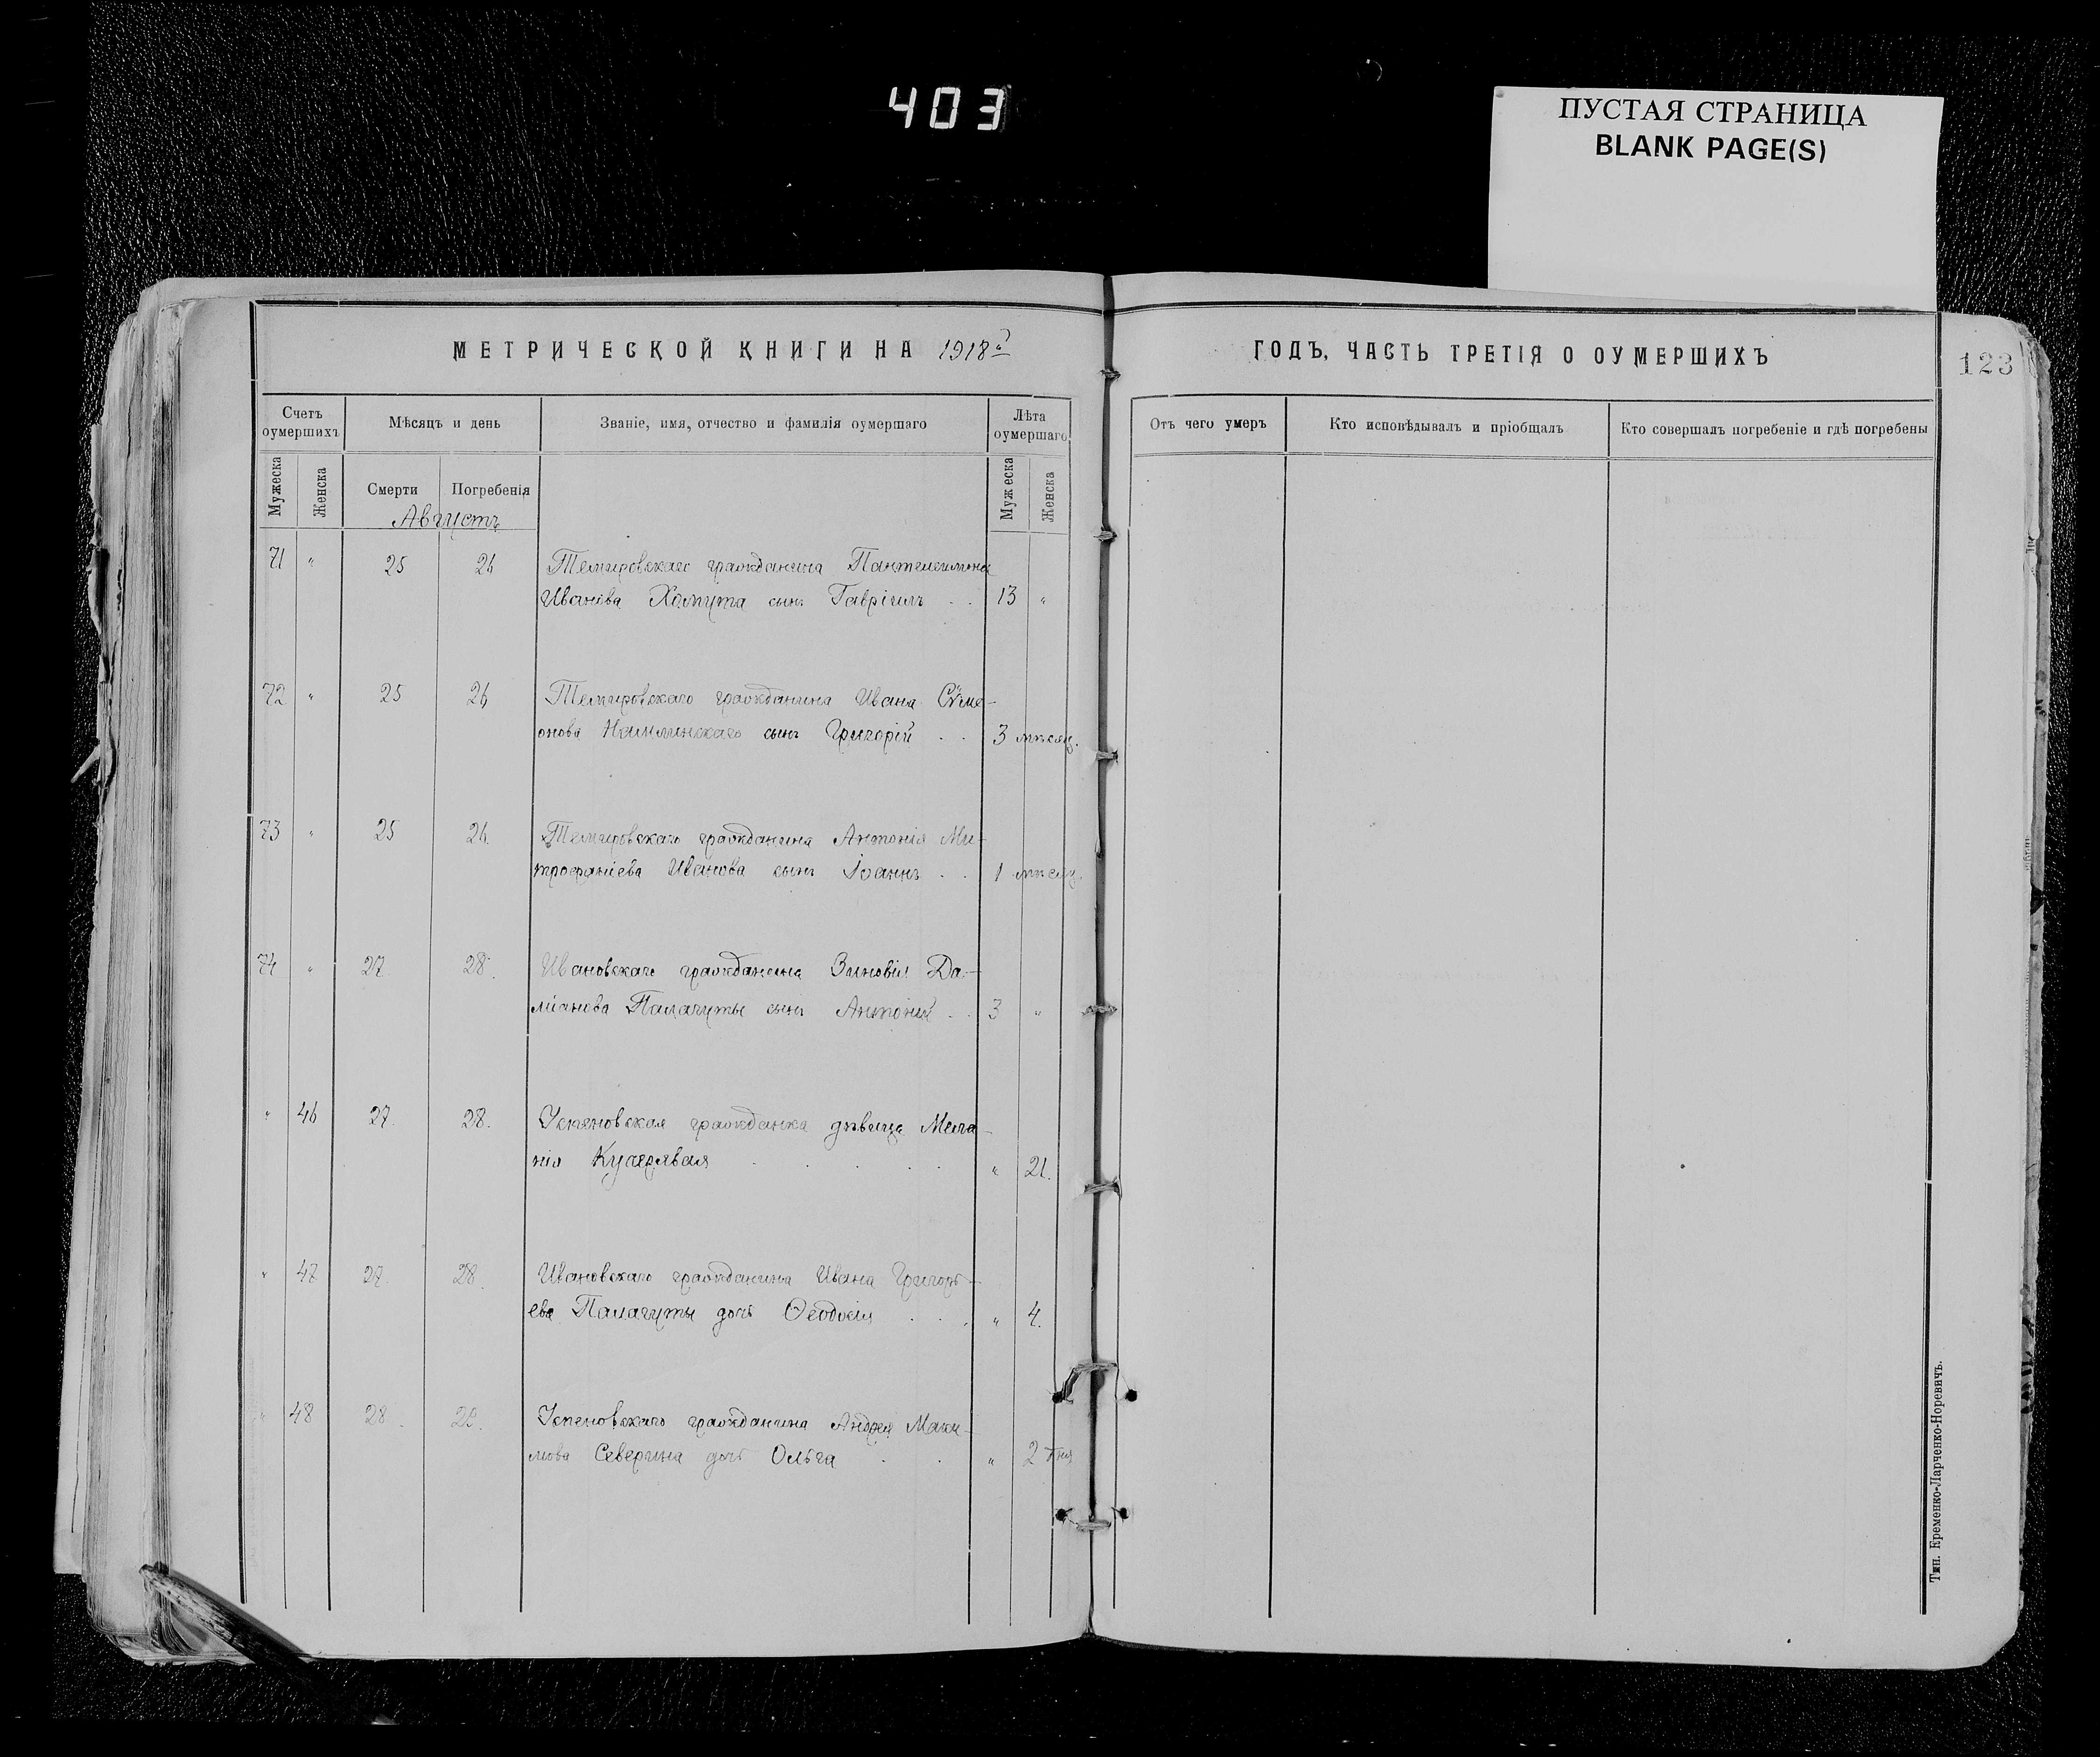 403
ПУСТАЯ СТРАНИЦА
BLANK PAGE(S)
МЕТРИЧЕСКОЙ КНИГИ НА 1918 й
ГОДЪ, ЧАСТЬ ТРЕТІЯ О ОУМЕРШИХЪ
123
Счетъ оумершихъ
Мѣсяцъ и день
Званіе, имя, отчество и фамилія оумершаго
Лѣта оумершаго
Отъ чего умеръ
Кто исповѣдывалъ и пріобщалъ
Кто совершалъ погребеніе и гдѣ погребены
Мужеска
Женска
Смерти
Погребенія
Мужеска
Женска
Августъ
71 " 25 26 Темировскаго гражданина Пантелеимона
Иванова Хомута сынъ Гавріилъ . . 13 "
72 " 25 26 Темировскаго гражданина Ивана Сѵме-
онова сынъ Григорій . . 3 мѣсяц.
73 " 25 26 Темировскаго гражданина Антонія Ми-
трофаніева Иванова сынъ Іоаннъ . . 1 мѣсяц.
74 " 27 28. Ивановскаго гражданина Зиновія Да-
міанова Палагуты сынъ Антоній . . 3 "
" 46 27. 28. Успеновская гражданка дѣвица Мела-
нія Кучерявая . . . . . " 21.
" 47 27. 28. Ивановскаго гражданина Ивана Григорь-
ева Палагуты дочь Ѳеодосія . . . " 4.
" 48 28. 29. Успеновскаго гражданина Андрея Макси-
мова Северина дочь Ольга . . " 2 дня
Тип. Еременко-Ларченко-Норевичъ.